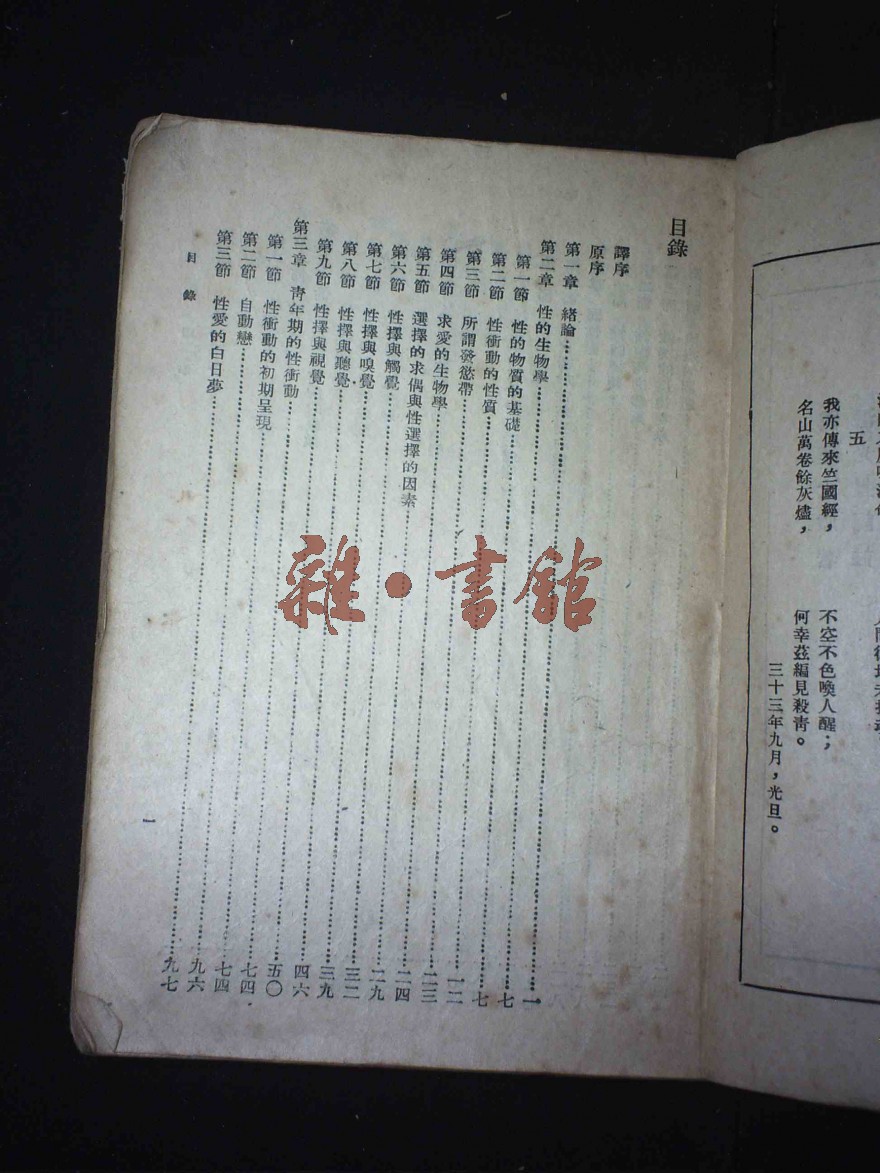 五
我亦傳來竺國經，不空不色喚人醒；
名山萬卷餘灰燼，何幸茲編見殺青。
三十三年九月，光旦。
目錄
譯序
原序
第一章 緒論……一
第二章 性的生物學……七
第一節 性的物質的基礎……七
第二節 性衝動的性質……一二
第三節 所謂發慾帶……二三
第四節 求愛的生物學……二四
第五節 選擇的求偶與性選擇的因素……二九
第六節 性擇與觸覺……三二
第七節 性擇與嗅覺……三九
第八節 性擇與聽覺……四六
第九節 性擇與視覺……五〇
第三章 青年期的性衝動……七四
第一節 性衝動的初期呈現……七四
第二節 自動戀……九六
第三節 性愛的白日夢……九七
目錄
一
雜·書館